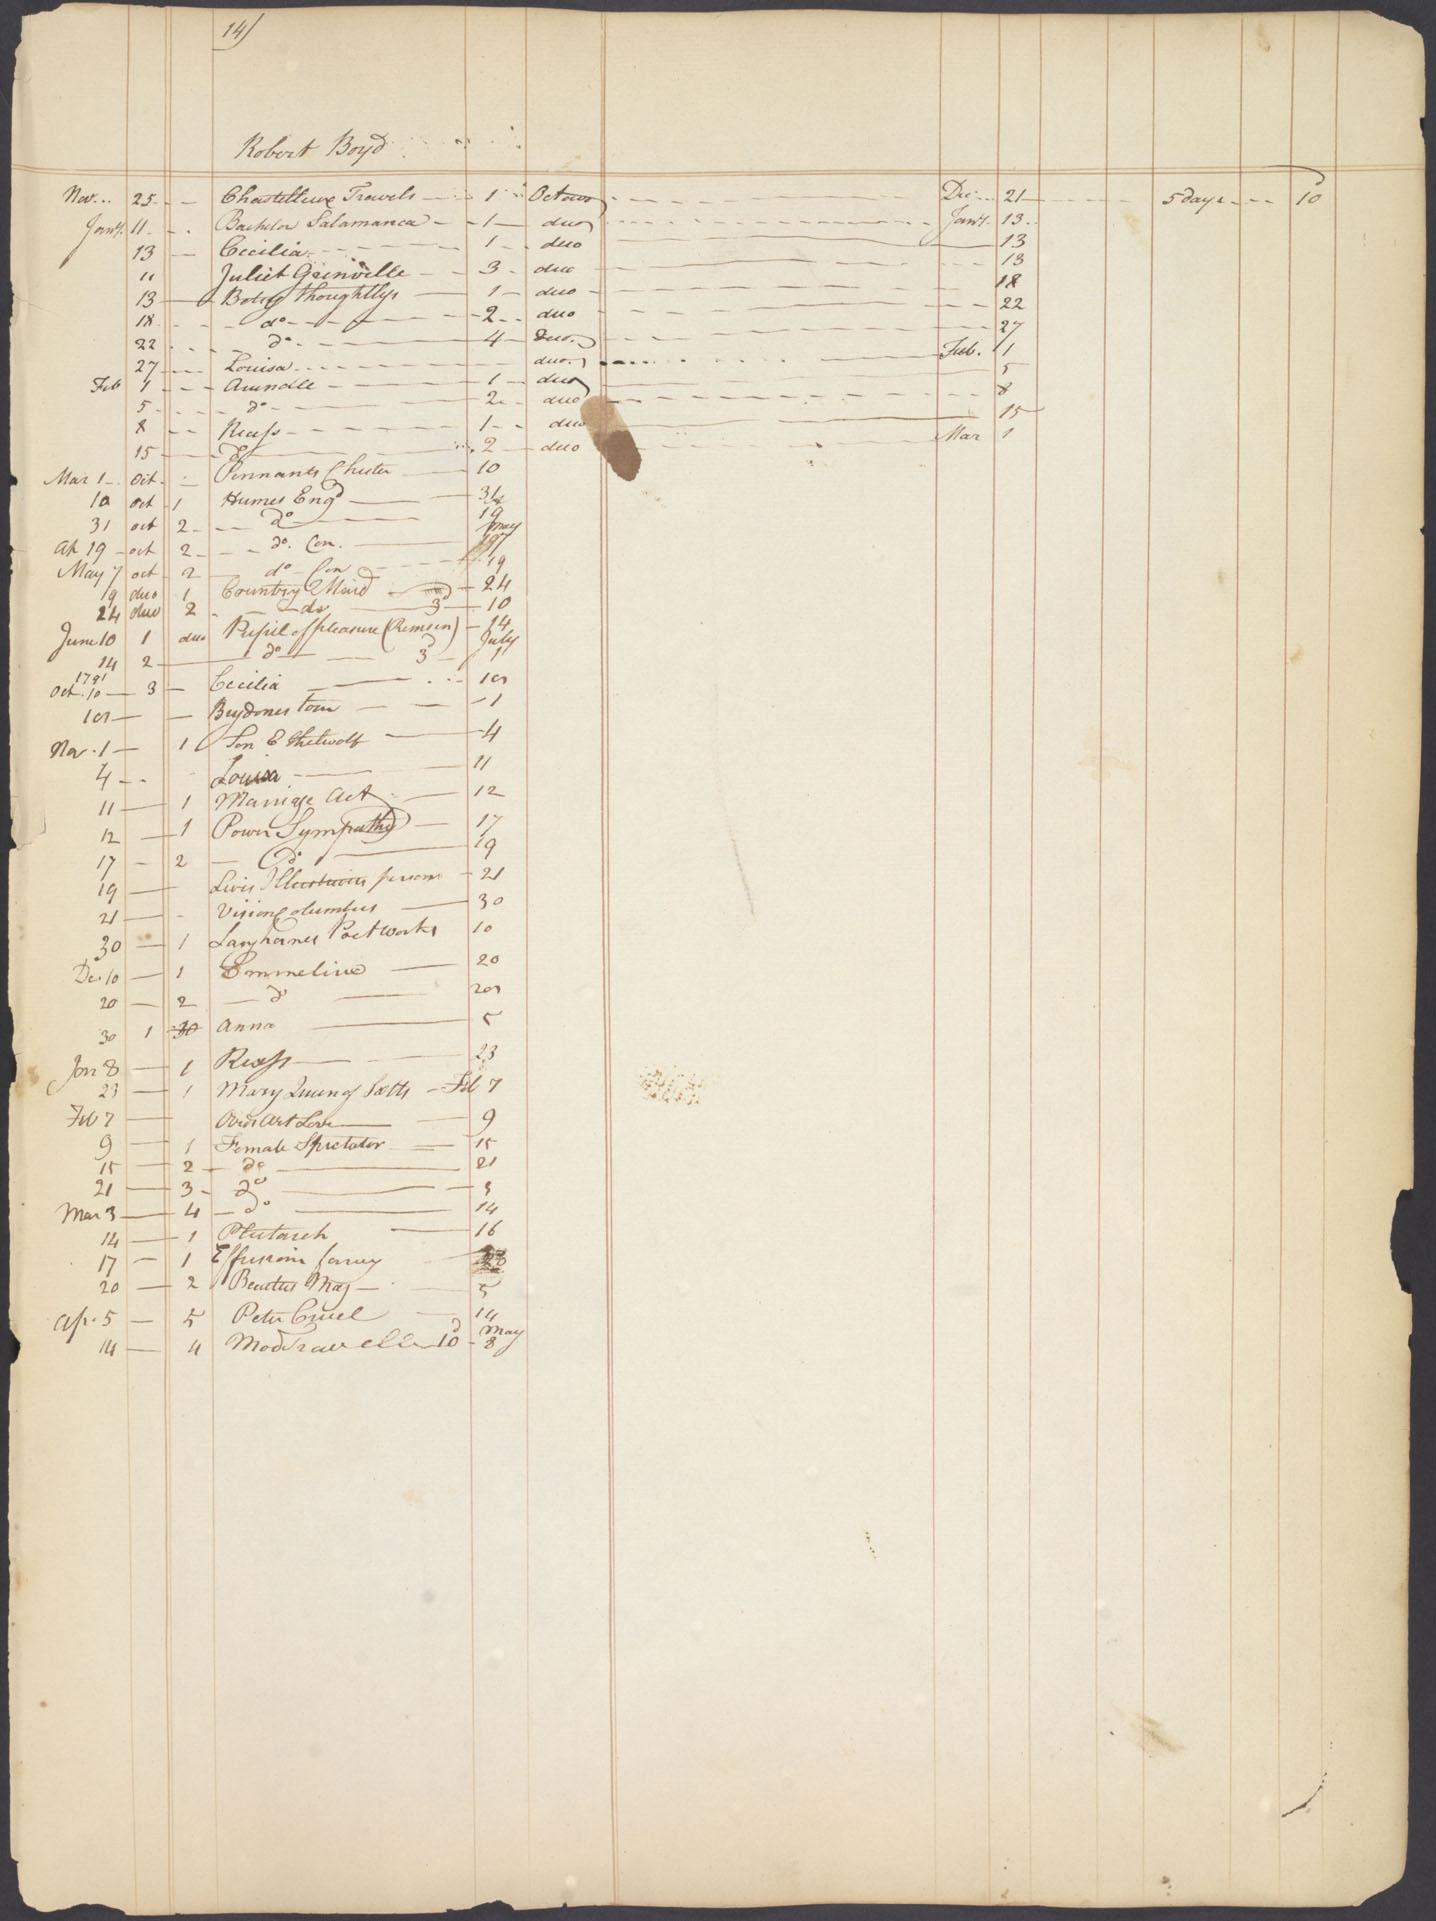 14/
Robert Boyd
Nov. 25 Chastelleux Travels 1 Octavo Dec 21 5 days 10
Jany. 11 Bachelor Salamanca 1 duo Jany. 13
13 Cecilia 1 duo 13
11 Juliet Grenville 3 duo 13
13 Betsy Thoughtlys 1 duo 18
18 do 2 duo 22
22 do 4 duo 27
27 Louisa duo Feb. 1
Feb 1 Arundle 1 duo 5
5 do 2 duo 8
8 Recess 1 duo 15
15 do 2 duo Mar 1
Mar 1 Oct. Pennants Chester 10
10 oct 1 Humes Engd 31
31 oct 2 do 19
Ap 19 oct 2 do. Con. May 7
May 7 oct 2 do Con 19
19 duo 1 Country Maid 24
24 duo 2 do 3d 10
June 10 1 duo Pupil of pleasure (Remsen) 14
14 2 do 3d July 1
1791
Oct. 10 3 Cecilia 10
10 Brydones tour 1
Nov. 1 1 Son Ethelwolf 4
4 Louisa 11
11 1 Marriage Act 12
12 1 Power Sympathy 17
17 2 do 19
19 Lives Illustrious persons 21
21 Vision Columbus 30
30 1 Langhornes Poet works 10
Dec 10 1 Emmeline 20
20 2 do 20
30 1 30 Anna 5
Jan 8 1 Recess 23
23 1 Mary Queen of Scotts Feb 7
Feb 7 Ovids Art Love 9
9 1 Female Spectator 15
15 2 do 21
21 3 do 3
Mar 3 4 do 14
14 1 Plutarch 16
17 1 Effusions fancy
20 2 Beauties Mag 5
Ap. 5 5 Peter Cruel 14
14 4 Mod Traveller 10d May 8